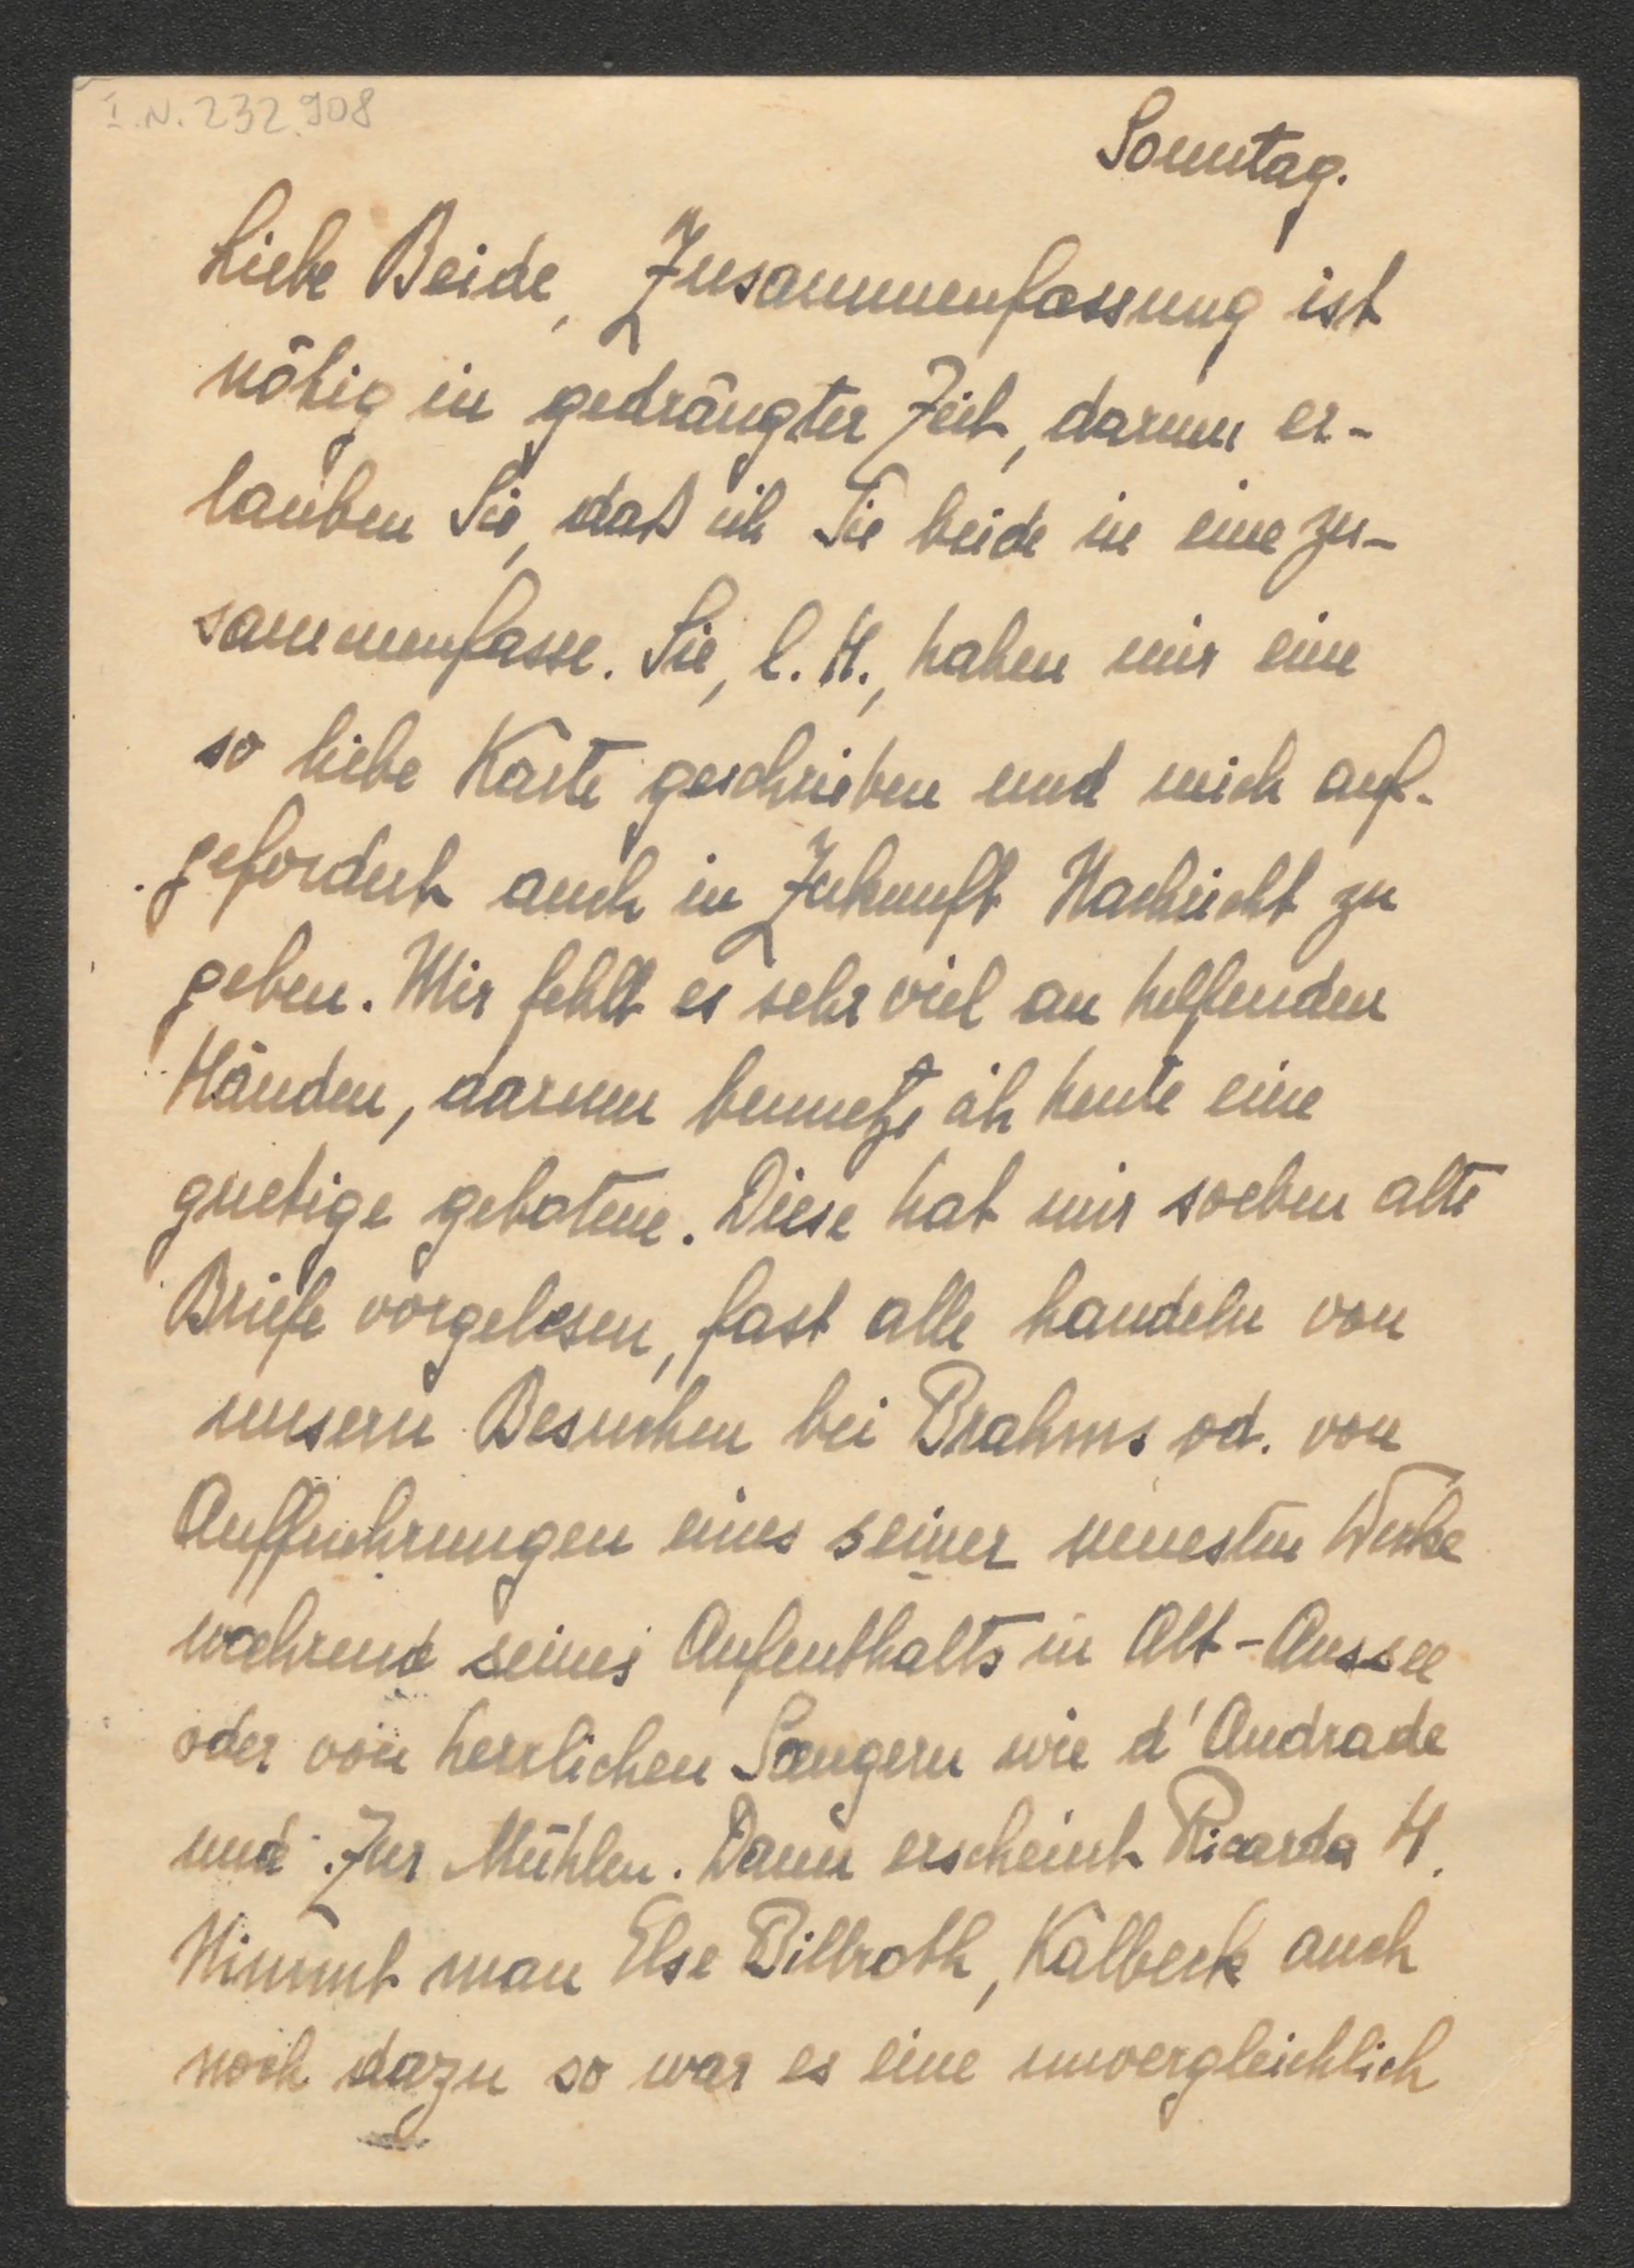 I.N. 232.908
Sonntag.
Liebe Beide, Zusammenfassung ist
nötig in gedrängter Zeit, darum er-
lauben Sie, daß ich Sie beide in eine zu-
sammenfasse. Sie, l. H., haben mir eine
so liebe Karte geschrieben und mich auf-
gefordert auch in Zukunft Nachricht zu
geben. Mir fehlt es sehr viel an helfenden
Händen, darum benuetze ich heute eine
guetige gebotene. Diese hat mir soeben alte
Briefe vorgelesen, fast alle handeln von
unsern Besuchen bei Brahms od. von
Auffuehrungen eines seiner neuesten Werke
waehrend seines Aufenthalts in Alt-Aussee
oder von herrlichen Saengern wie d'Andrade
und Zur Mühlen. Dann erscheint Ricarda H.
Nimmt man Else Billroth, Kalbeck auch
noch dazu so war es eine unvergleichlich